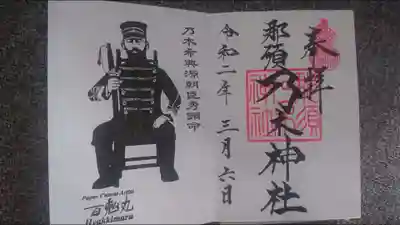 奉拝
那須乃木神社
令和二年三月六日
乃木希典源朝臣秀顕命
Paper Cutout Artist
百鬼丸
Hyakkimaru